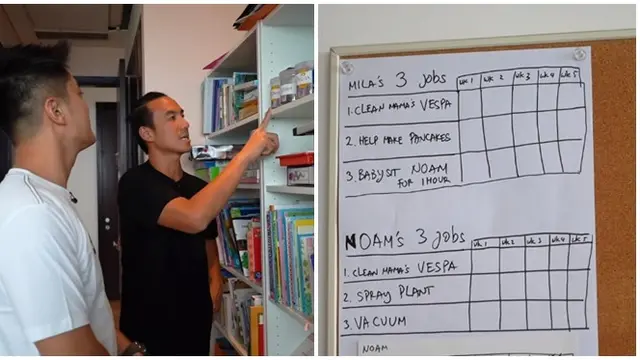 MILA'S 3 JOBS WK 1 WK 2 WK 3 WK 4 WK 5
1. CLEAN MAMA'S VESPA
2. HELP MAKE PANCAKES
3. BABYSIT NOAM
FOR 1 HOUR
NOAM'S 3 JOBS WK 1 WK 2 WK 3 WK 4 WK 5
1. CLEAN MAMA'S VESPA
2. SPRAY PLANT
3. VACUUM
NOAM